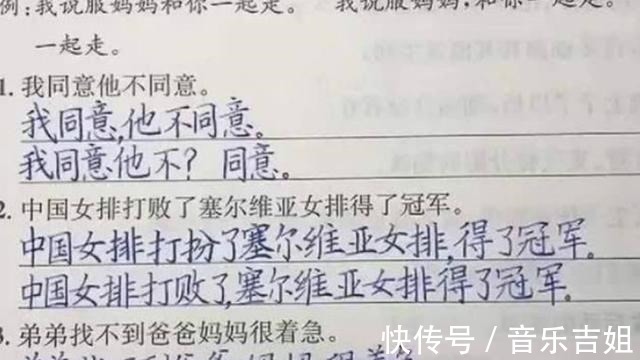 例:我说服妈妈和你一起走。 我说服妈妈,和你一起走。
一起走。
1. 我同意他不同意。
我同意,他不同意。
我同意他不？同意。
2. 中国女排打败了塞尔维亚女排得了冠军。
中国女排打扮了塞尔维亚女排,得了冠军.
中国女排打败了,塞尔维亚女排得了冠军.
3. 弟弟找不到爸爸妈妈很着急。
快传号 / 音乐吉姐